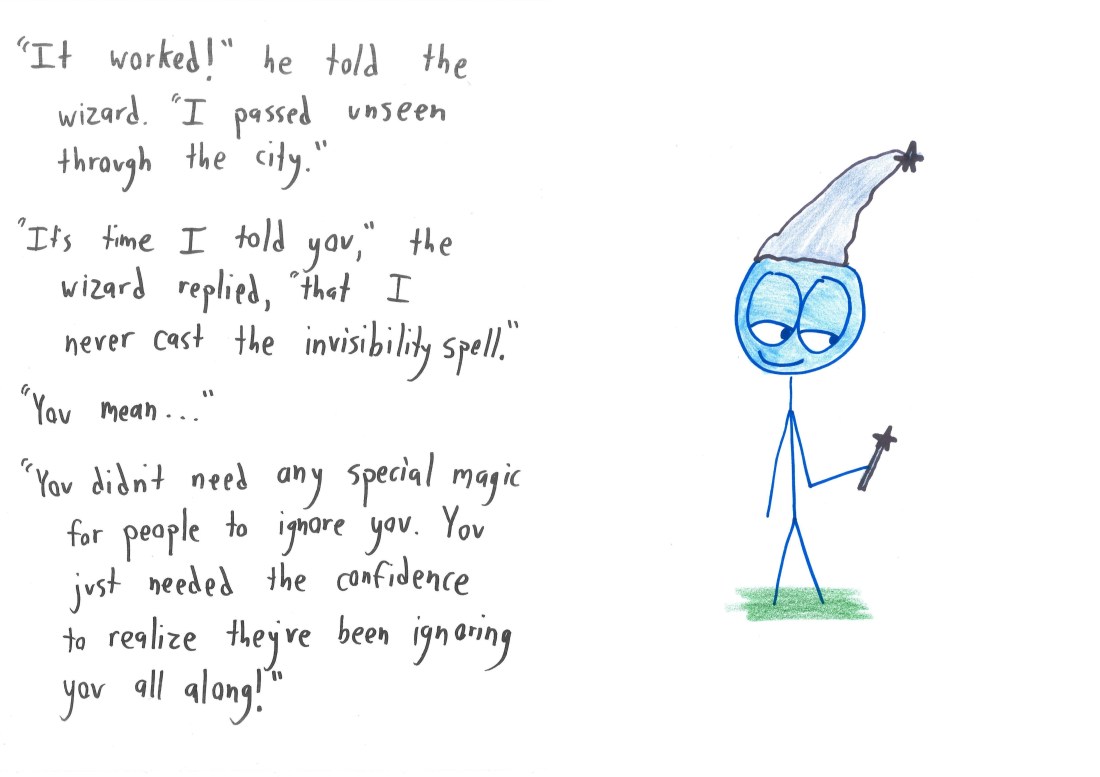 "It worked!" he told the
wizard. "I passed unseen
through the city."
"It's time I told you," the
wizard replied, "that I
never cast the invisibility spell."
"You mean..."
"You didn't need any special magic
for people to ignore you. You
just needed the confidence
to realize they've been ignoring
you all along!"